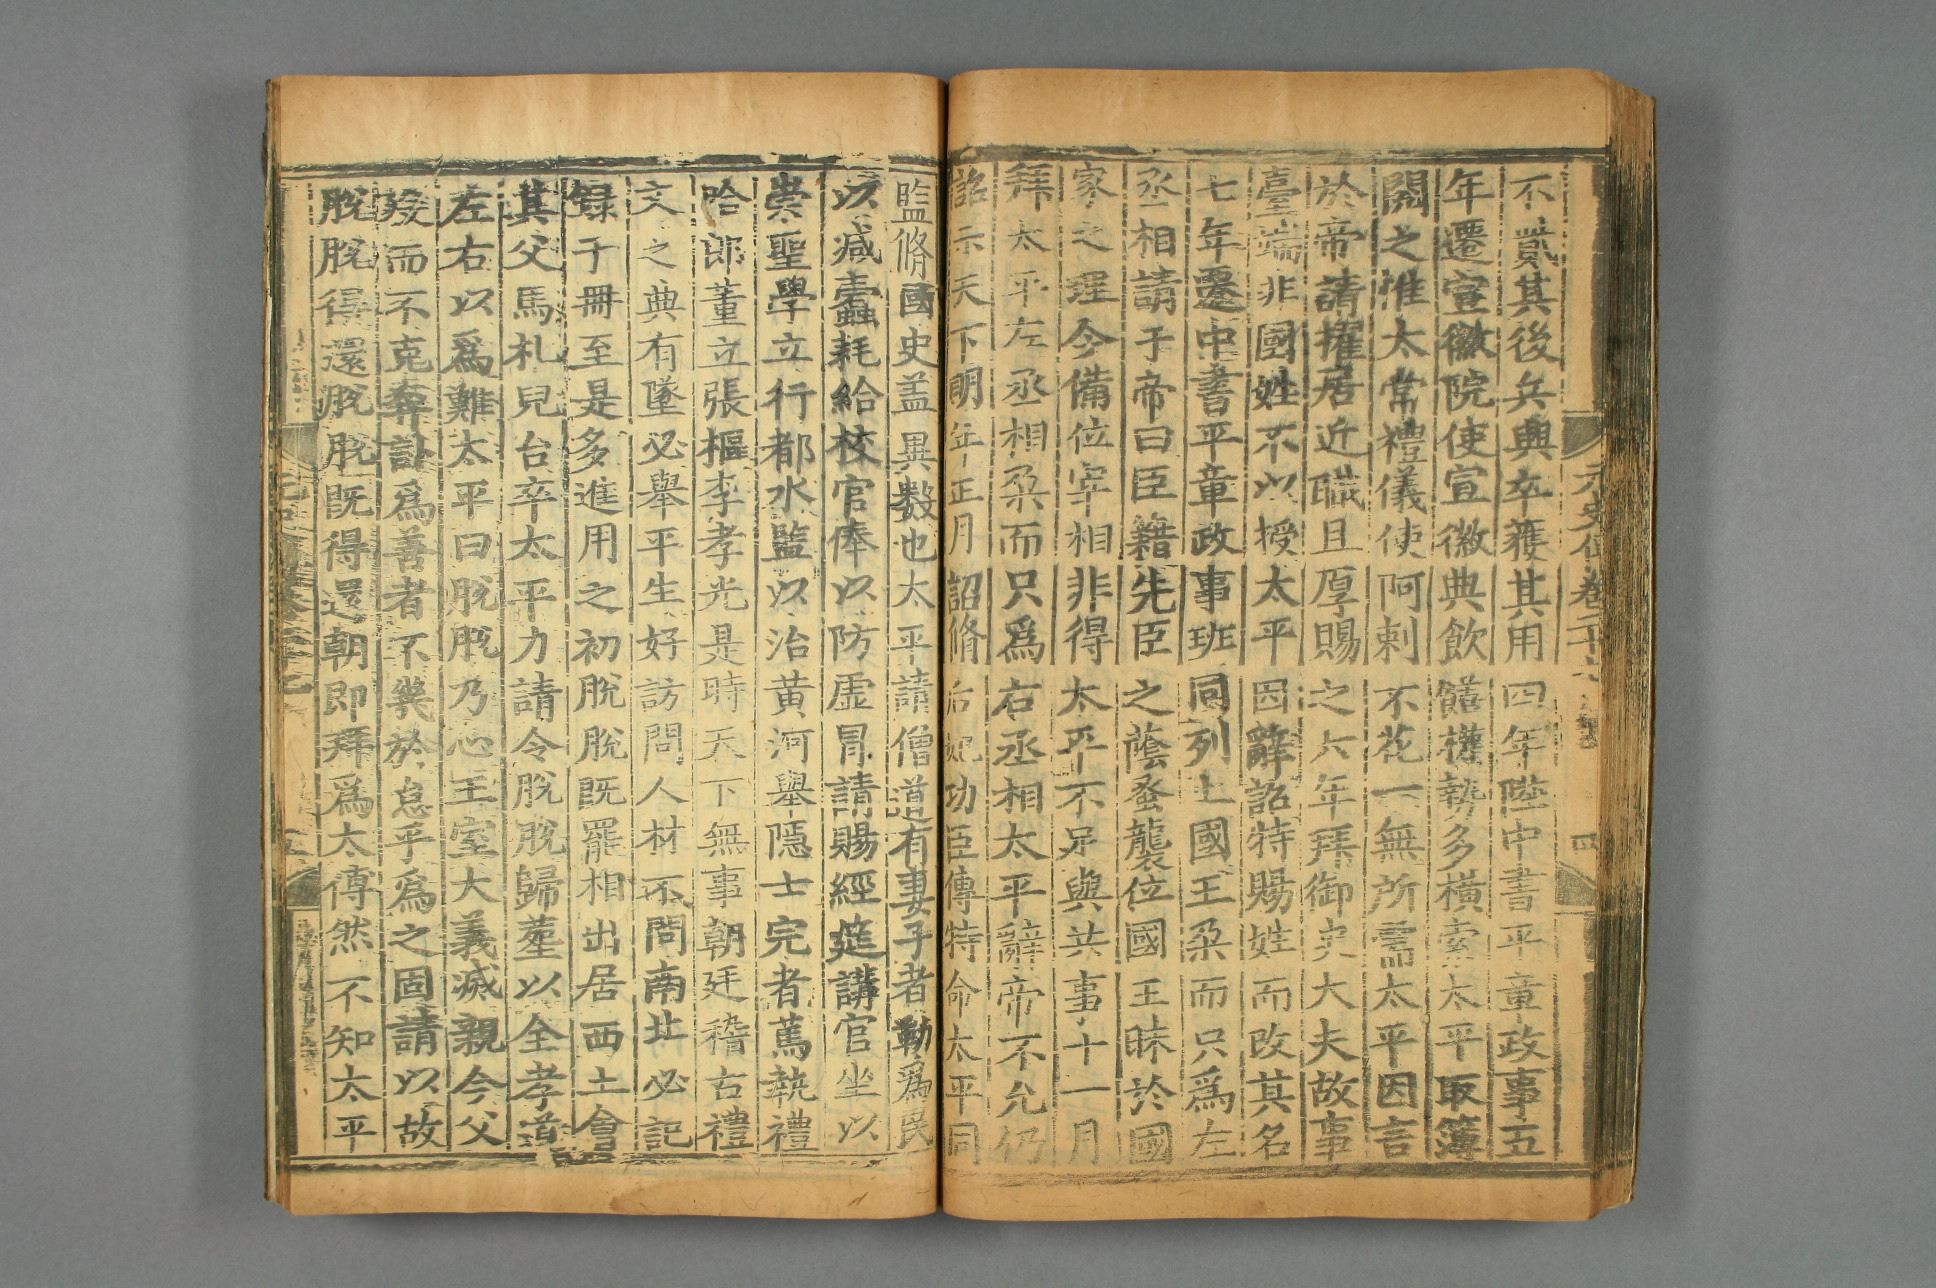 不貳其後兵興卒獲其用四年陞中書平章政事五
年遷宣徽院使宣徽典飲饍權勢多橫索太平取簿
閱之惟太常禮儀使阿剌不花一無所需太平因言
於帝請擢居近職且厚賜之六年拜御史大夫故事
臺端非國姓不以授太平因辭詔特賜姓而改其名
七年遷中書平章政事班同列上國王朶而只爲左
丞相請于帝曰臣籍先臣之蔭蚤襲位國王昧於國
家之理今備位宰相非得太平不足與共事十一月
拜太平左丞相朶而只爲右丞相太平辭帝不允仍
詔示天下明年正月詔脩后妃功臣傳特命太平同
監脩國史盖異數也太平請僧道有妻子者勒爲民
以减蠹耗給校官俸以防虛冒請賜經筵講官坐以
崇聖學立行都水監以治黄河舉隱士完者篤執禮
哈郎董立張樞李孝光是時天下無事朝廷稽古禮
文之典有墜必舉平生好訪問人材不問南北必記
録于冊至是多進用之初脫脫既罷相出居西土會
其父馬札兒台卒太平力請令脫脫歸塟以全孝道
左右以爲難太平曰脫脫乃心王室大義滅親今父
歿而不克奔訃爲善者不幾於怠乎爲之固請以故
脫脫得還脫脫既得還朝即拜爲太傅然不知太平
元史傳卷二十七
四